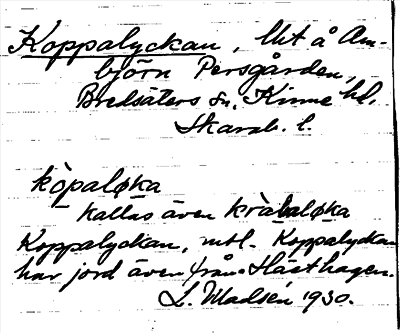 Koppalyckan, lht å Am-
björn Persgården,
Bredsäters sn, Kinne hd,
Skarab. l.
kòpaløka
kallas även kràbaløka
Koppalyckan, mtl. Koppalyckan
har jord även från Hästhagen.
L. Madsén 1930.